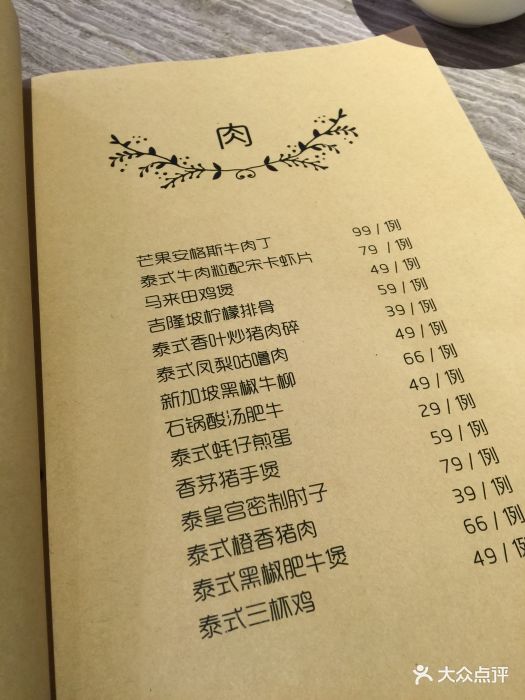 肉
芒果安格斯牛肉丁 99 / 例
泰式牛肉粒配宋卡虾片 79 / 例
马来田鸡煲 49 / 例
吉隆坡柠檬排骨 59 / 例
泰式香叶炒猪肉碎 39 / 例
泰式凤梨咕噜肉 49 / 例
新加坡黑椒牛柳 66 / 例
石锅酸汤肥牛 49 / 例
泰式蚝仔煎蛋 29 / 例
香茅猪手煲 59 / 例
泰皇宫密制肘子 79 / 例
泰式橙香猪肉 39 / 例
泰式黑椒肥牛煲 66 / 例
泰式三杯鸡 49 / 例
大众点评